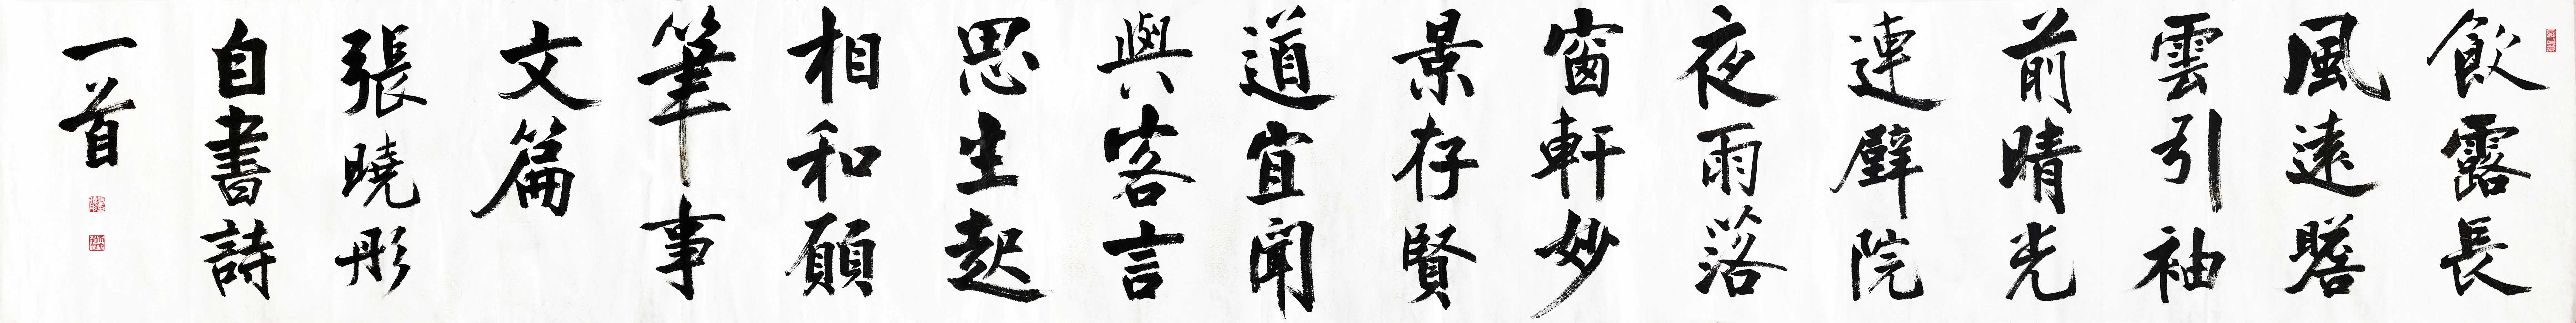 飲露長
風遠瞻
雲引袖
前晴光
連壁院
夜雨落
窗軒妙
景存賢
道宜聞
與客言
思生起
相和願
筆事
文篇
張曉彤
自書詩
一首